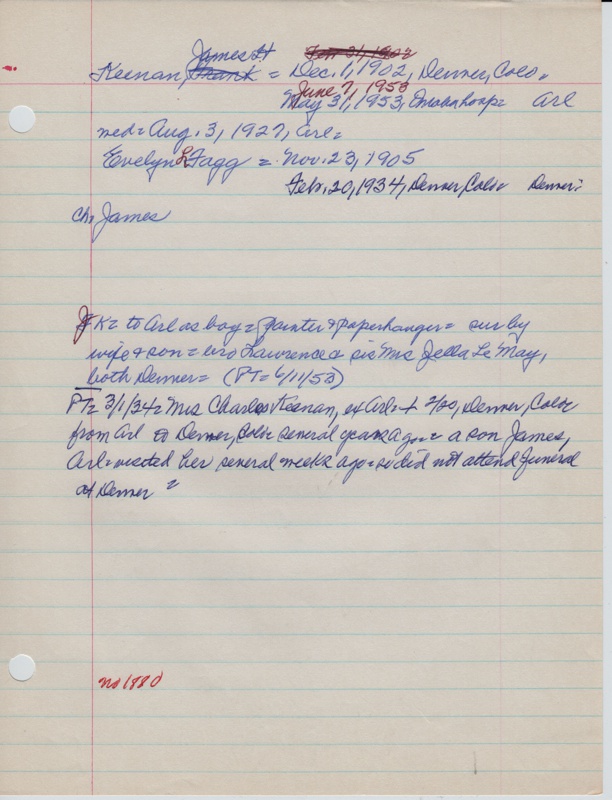 James H Feb 21, 1902
Keenan, Frank = Dec. 1, 1902, Denver, Colo.
June 7, 1953
May 31, 1953, Omaha hosp = Arl
md = Aug. 3, 1927, Arl =
Evelyn L Fagg = Nov. 23, 1905
Feb. 20, 1934, Denver, Colo = Denver =
Ch = James
JK = to Arl as boy = painter & paperhanger = sur by
wife & son = bro Lawrence & sis Mrs Zella Le May,
both Denver = (PT = 6/11/53)
PT = 3/1/34 = Mrs Charles Keenan, ex Arl = + 2/20, Denver, Colo =
from Arl to Denver, Colo several years ago = a son James,
Arl = visited her several weeks ago = so did not attend funeral
at Denver =
no 1880